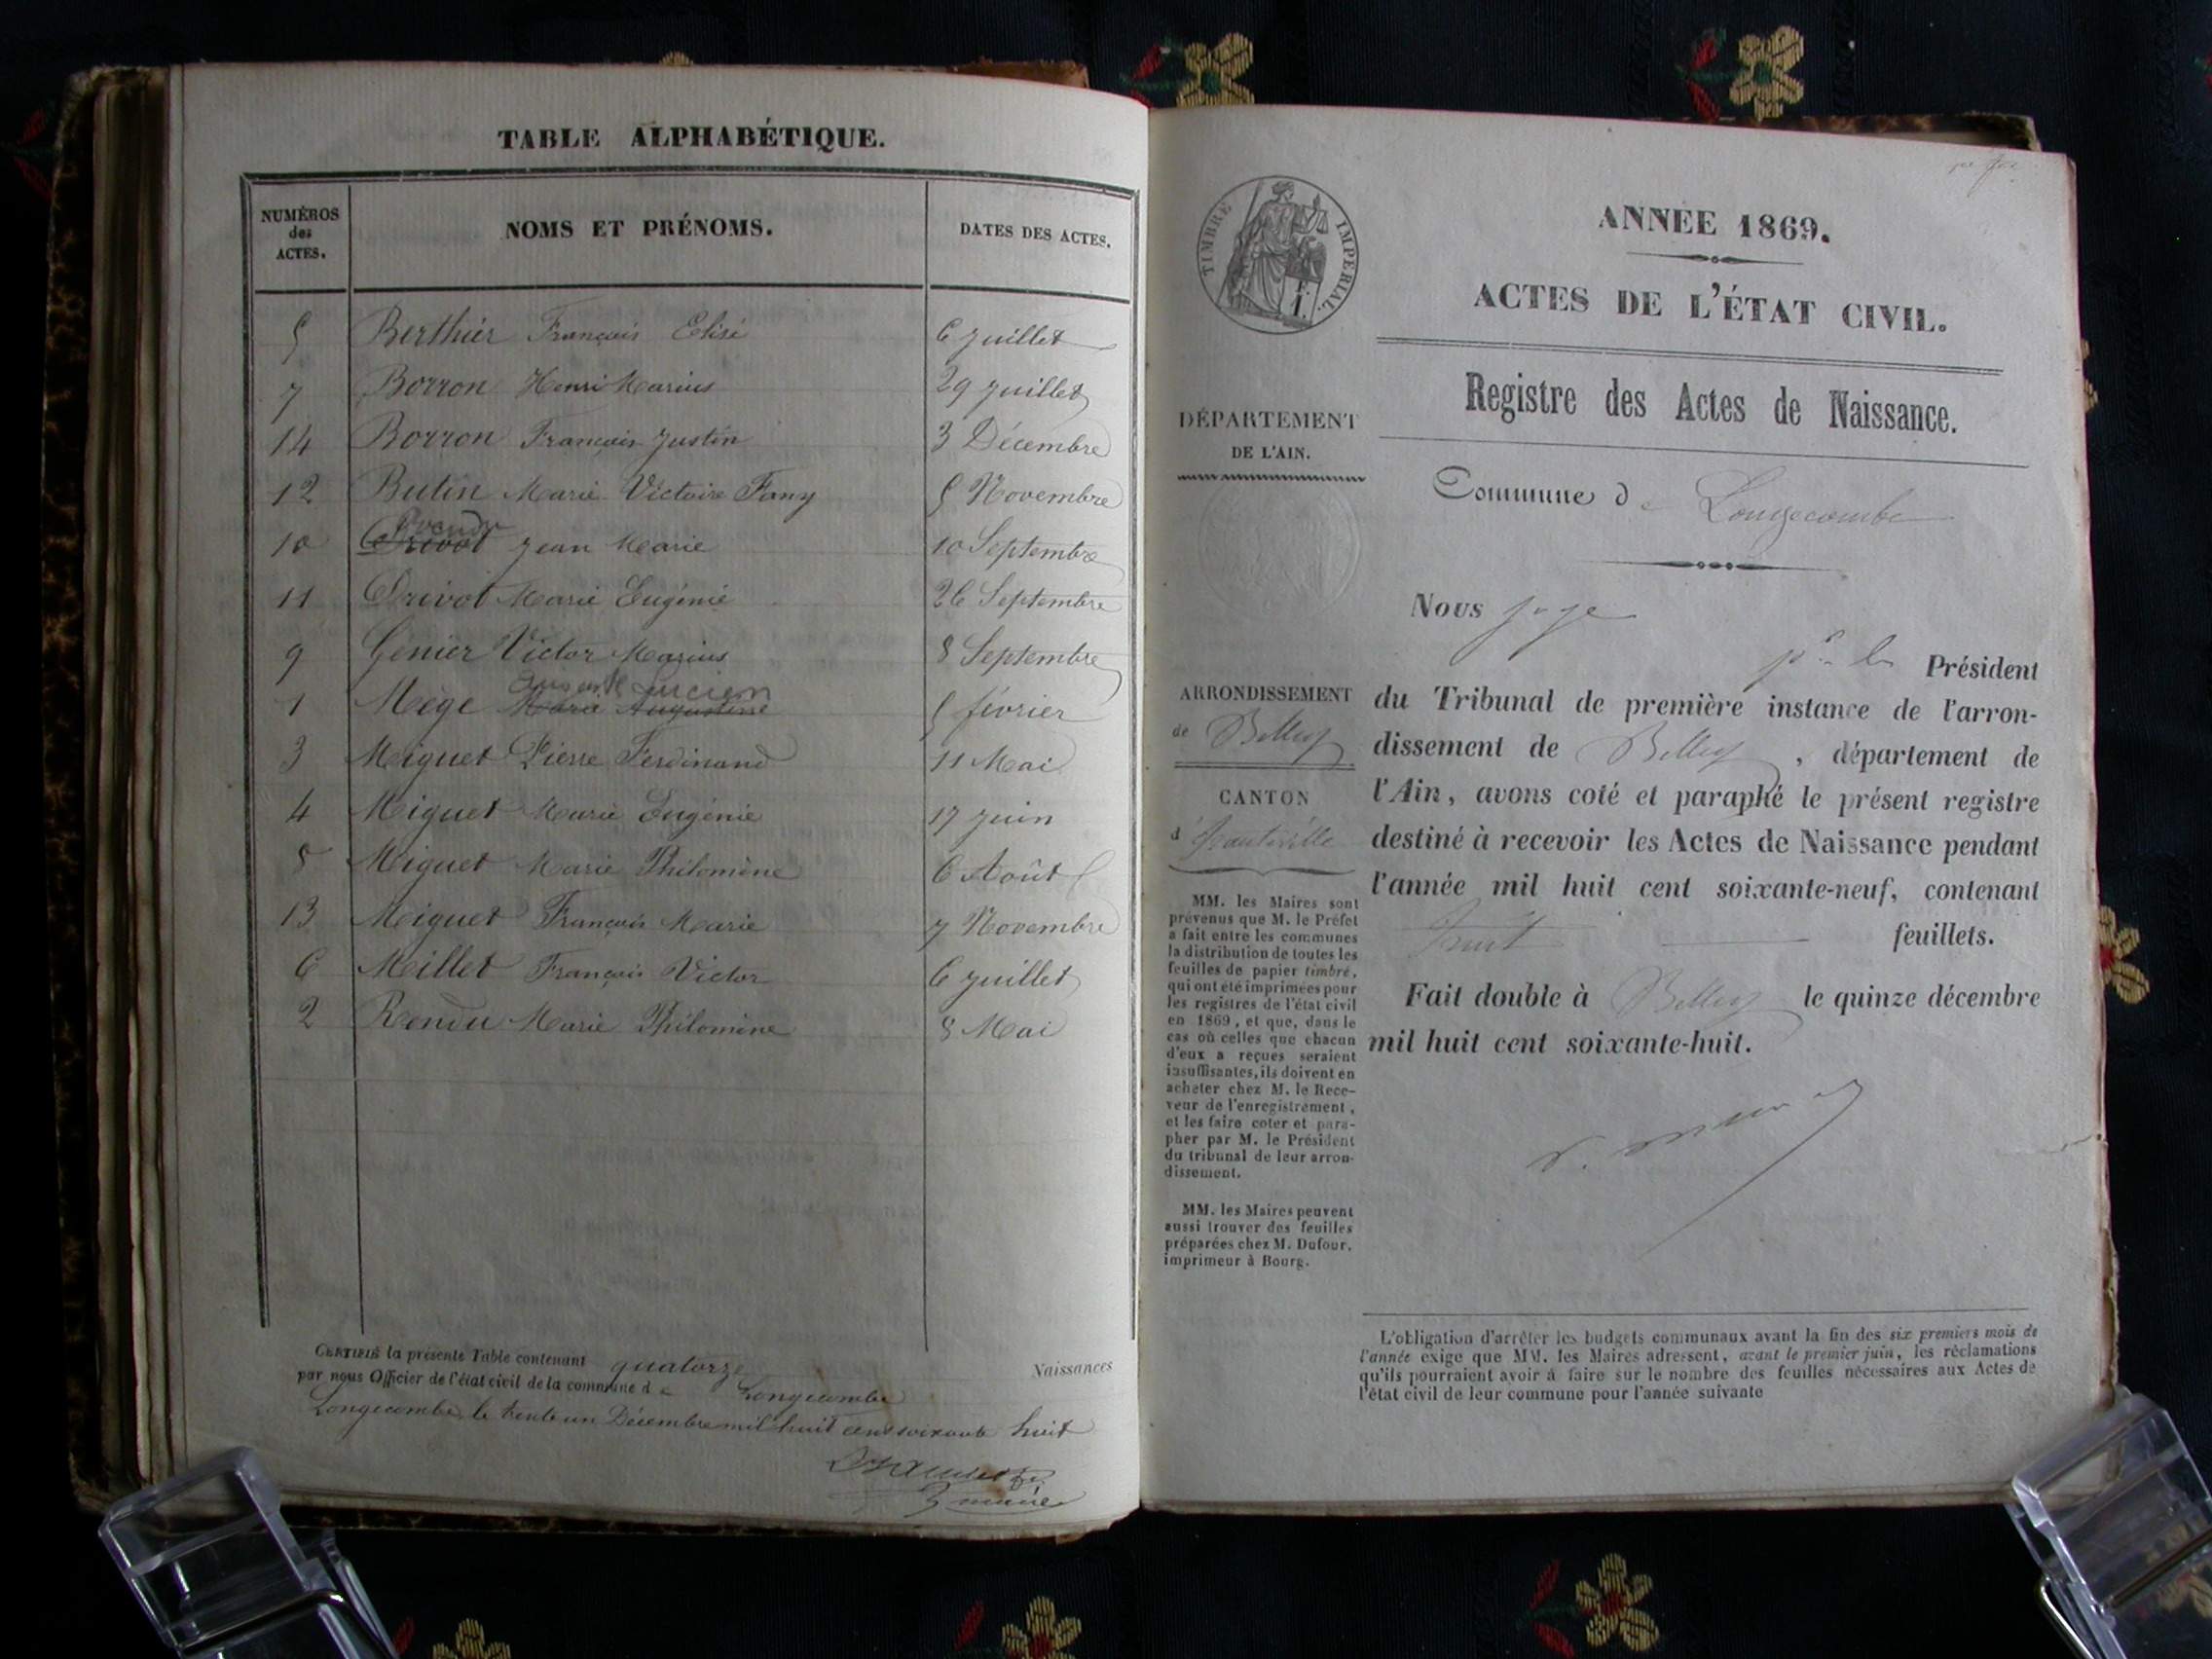 TABLE ALPHABÉTIQUE.
NUMÉROS des ACTES. NOMS ET PRÉNOMS. DATES DES ACTES.
5 Berthier François Elisé 6 juillet
7 Borron Henri Marius 29 juillet
14 Borron François Justin 3 Décembre
12 Butin Marie Victoire Fany 5 Novembre
10 Drivot Jean Marie 10 Septembre
11 Drivot Marie Eugénie 26 Septembre
9 Génier Victor Marius 8 Septembre
Lucien
1 Mège Marie Augustine 5 février
3 Miguet Pierre Ferdinand 11 Mai
4 Miguet Marie Eugénie 17 juin
8 Miguet Marie Philomène 6 Août
13 Miguet François Marie 7 Novembre
6 Millet François Victor 6 juillet
2 Rendu Marie Philomène 8 Mai
CERTIFIÉ la présente Table contenant quatorze Naissances
par nous Officier de l'état civil de la commune de Longecombe
Longecombe, le trente un Décembre mil huit cent soixante huit
maire
TIMBRE IMPÉRIAL.
ANNÉE 1869.
ACTES DE L'ÉTAT CIVIL.
Registre des Actes de Naissance.
DÉPARTEMENT
DE L'AIN.
Commune de Longecombe
Nous juge
pr le Président
ARRONDISSEMENT
de Belley
CANTON
d'hauteville
MM. les Maires sont
prévenus que M. le Préfet
a fait entre les communes
la distribution de toutes les
feuilles de papier timbré,
qui ont été imprimées pour
les registres de l'état civil
en 1869, et que, dans le
cas où celles que chacun
d'eux a reçues seraient
insuffisantes, ils doivent en
acheter chez M. le Rece-
veur de l'enregistrement,
et les faire coter et para-
pher par M. le Président
du tribunal de leur arron-
dissement.
MM. les Maires peuvent
aussi trouver des feuilles
préparées chez M. Dufour,
imprimeur à Bourg.
du Tribunal de première instance de l'arron-
dissement de Belley, département de
l'Ain, avons coté et paraphé le présent registre
destiné à recevoir les Actes de Naissance pendant
l'année mil huit cent soixante-neuf, contenant
huit feuillets.
Fait double à Belley le quinze décembre
mil huit cent soixante-huit.
L'obligation d'arrêter les budgets communaux avant la fin des six premiers mois de
l'année exige que MM. les Maires adressent, avant le premier juin, les réclamations
qu'ils pourraient avoir à faire sur le nombre des feuilles nécessaires aux Actes de
l'état civil de leur commune pour l'année suivante